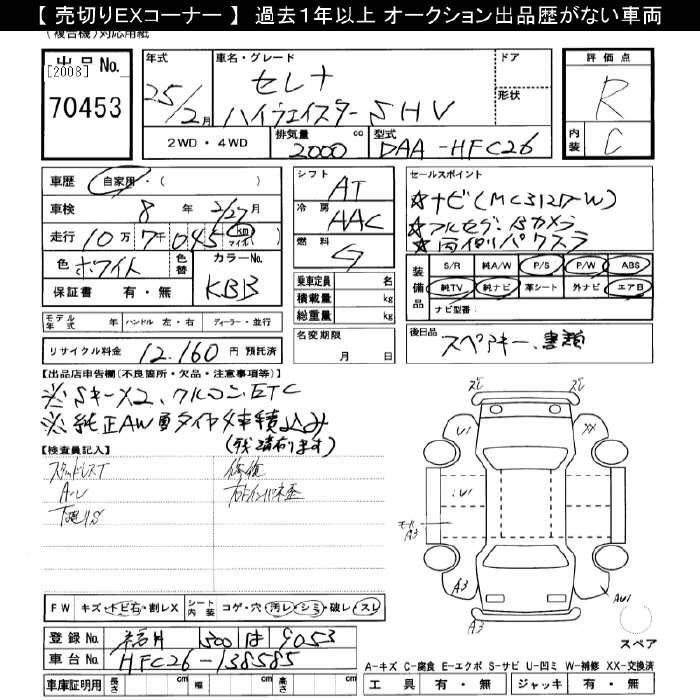 【 売切りEXコーナー 】 過去1年以上 オークション出品歴がない車両
(複合機)対応用紙
出品 No.
[2008]
70453
年式
25/2月
車名・グレード
セレナ
ハイウェイスター SHV
ドア
形状
評価点
R
内装
C
2WD・4WD
排気量
2000
cc
型式
DAA-HFC26
車歴
自家用・( )
車検
8 年 2/27月
走行
10万 7千 045
km
マイル
色
ホワイト
色替
カラーNo.
KBB
保証書 有・無
シフト
AT
冷房
AAC
燃料
G
乗車定員 名
積載量 kg
総重量 kg
セールスポイント
☆ナビ(MC312D-W)
☆フルセグ、Bカメラ
☆両側パワスラ
装備品
S/R 純A/W P/S P/W ABS
純TV 純ナビ 革シート 外ナビ エアB
ナビ型番:
モデル年式 年 ハンドル 左・右 ディーラー・並行
リサイクル料金 12,160 円 預託済
名変期限
月 日
後日品
スペアキー、書類
【出品店申告欄(不良箇所・欠品・注意事項等)】
※Sキー×2、フルコン、ETC
※純正AW夏タイヤ4本積込み
(残溝有ります)
【検査員記入】
スタッドレスT
A-U
下廻りS
修復
右Fインパネ歪
ズレ
ズレ
U1
XX
U1
モール
A3
A3
AU1
A3
スペア
FW キズ・トビ石・割レX
シート内装 コゲ・穴・汚レ・シミ・破レ・スレ
登録 No. 500 は 9053
車台 No. HFC26-138585
車庫証明用 長さ cm 幅 cm 高さ cm
A-キズ C-腐食 E-エクボ S-サビ U-凹ミ W-補修 XX-交換済
工具 有・無 ジャッキ 有・無